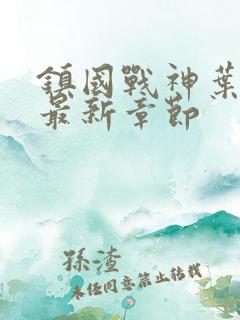 鎮國戰神葉
最新章節
孫渣
未經同意禁止轉載